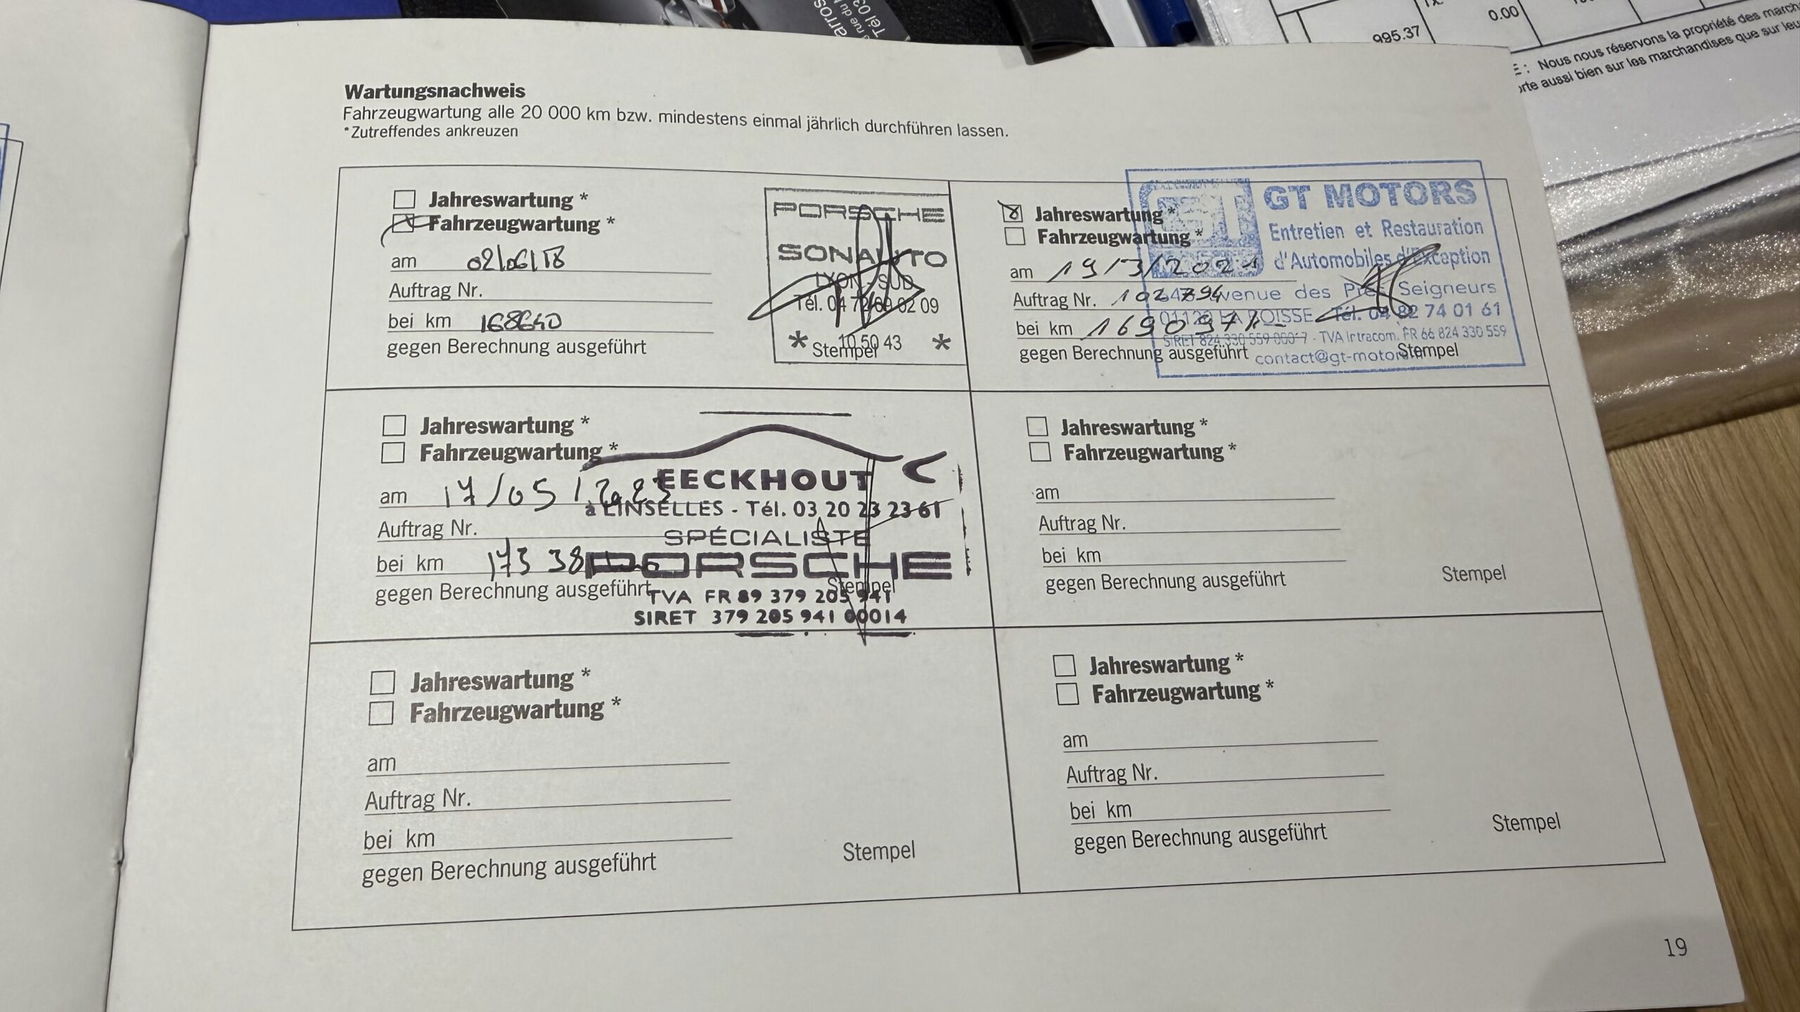 995.37
0.00
Nous nous réservons la propriété des march
orte aussi bien sur les marchandises que sur leu
Wartungsnachweis
Fahrzeugwartung alle 20 000 km bzw. mindestens einmal jährlich durchführen lassen.
*Zutreffendes ankreuzen
Jahreswartung *
Fahrzeugwartung *
am 02/06/18
Auftrag Nr.
bei km 168640
gegen Berechnung ausgeführt
Stempel
PORSCHE
SONAUTO
LYON - SUD
Tél. 04 72 02 09
* 10 50 43 *
Jahreswartung *
Fahrzeugwartung *
am 19/3/2021
Auftrag Nr. 102794
bei km 169097
gegen Berechnung ausgeführt
Stempel
GT MOTORS
Entretien et Restauration
d'Automobiles d'Exception
avenue des Prés Seigneurs
01120 LA BOISSE Tél. 04 82 74 01 61
SIRET 824 330 559 0007 - TVA Intracom. FR 66 824 330 559
contact@gt-motors
Jahreswartung *
Fahrzeugwartung *
am 17/05/2023
Auftrag Nr.
bei km 173 38
gegen Berechnung ausgeführt
Stempel
EECKHOUT
à LINSELLES - Tél. 03 20 23 23 61
SPÉCIALISTE
PORSCHE
TVA FR 89 379 205 941
SIRET 379 205 941 00014
Jahreswartung *
Fahrzeugwartung *
am
Auftrag Nr.
bei km
gegen Berechnung ausgeführt
Stempel
Jahreswartung *
Fahrzeugwartung *
am
Auftrag Nr.
bei km
gegen Berechnung ausgeführt
Stempel
Jahreswartung *
Fahrzeugwartung *
am
Auftrag Nr.
bei km
gegen Berechnung ausgeführt
Stempel
19